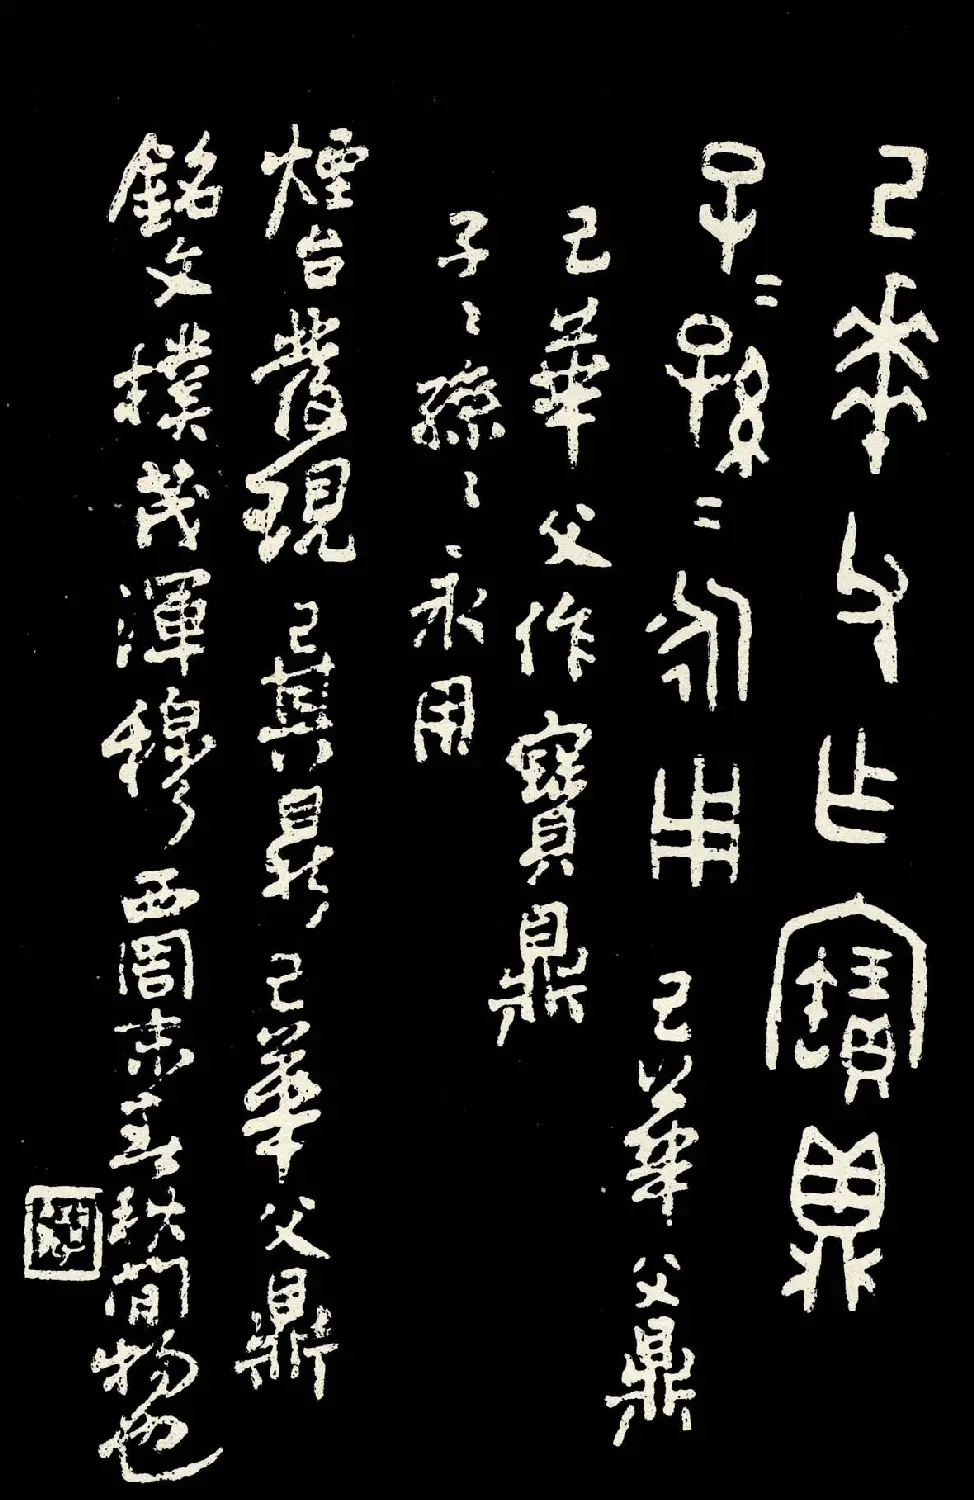 己華父乍寶鼎
子〻孫〻永用 己華父鼎
己華父作寶鼎
子〻孫〻永用
煙台發現㠱鼎己華父鼎
銘文樸茂渾穆西周末春秋間物也